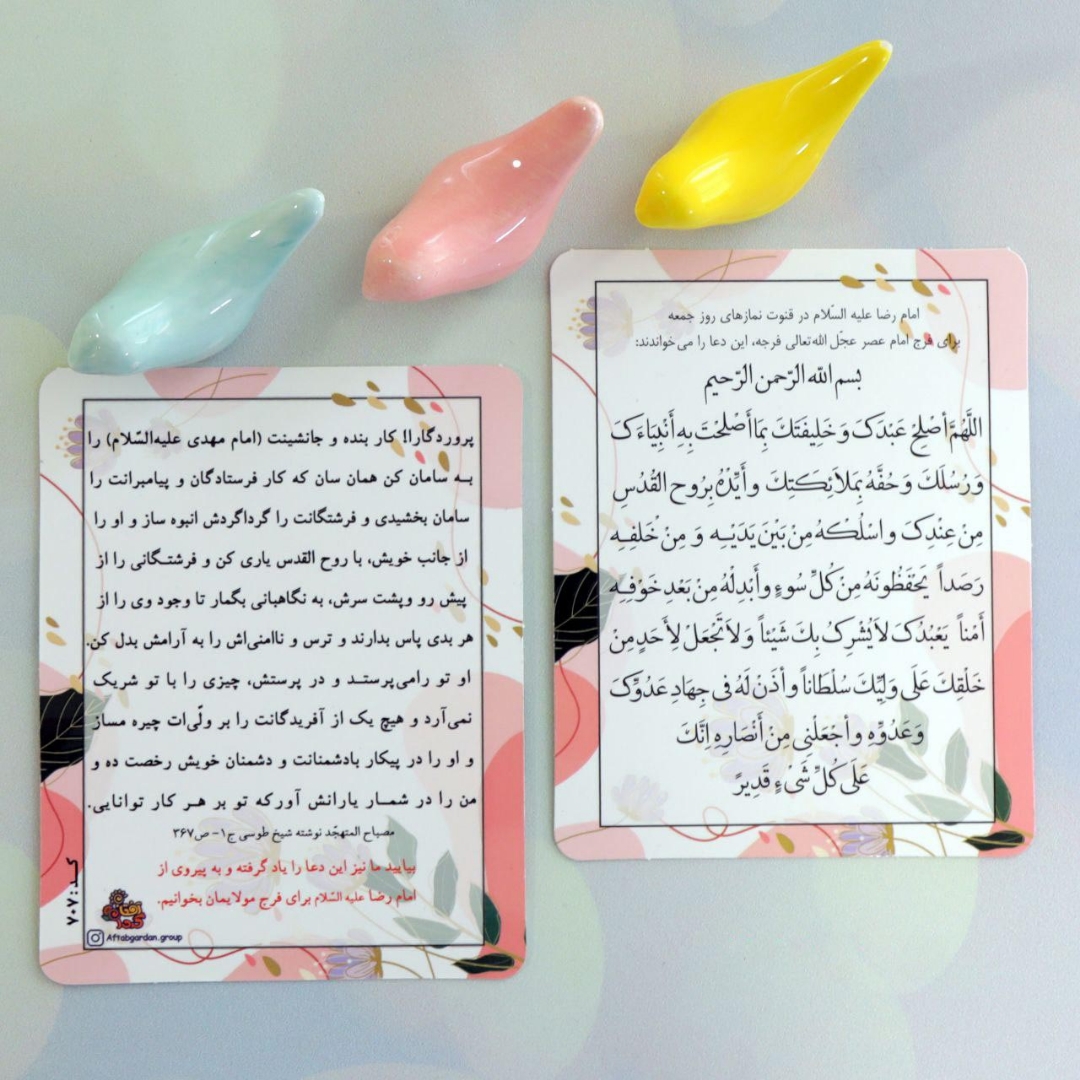 امام رضا علیه السّلام در قنوت نمازهای روز جمعه
برای فرج امام عصر عجّل الله تعالی فرجه، این دعا را می‌خواندند:
بسم الله الرّحمن الرّحیم
اللَّهُمَّ أَصْلِحْ عَبْدَکَ وَ خَلِیفَتَكَ بِمَا أَصْلَحْتَ بِهِ أَنْبِیَاءَکَ
وَ رُسُلَكَ وَ حُفَّهُ بِمَلَائِکَتِكَ وأَیِّدْهُ بِرُوحِ القُدُسِ
مِنْ عِنْدِکَ واسْلُكْهُ مِنْ بَیْنَ یَدَیْهِ وَ مِنْ خَلْفِهِ
رَصَداً یَحْفَظُونَهُ مِنْ کُلِّ سُوءٍ وأَبْدِلْهُ مِنْ بَعْدِ خَوْفِهِ
أَمْناً یَعْبُدُکَ لاَیُشْرِكُ بِكَ شَیْئاً وَلاَتَجْعَلْ لِأَحَدٍ مِنْ
خَلْقِكَ عَلَی وَلِیِّكَ سُلْطَاناً وأْذَنْ لَهُ فی جِهَادِ عَدُوِّکَ
وَعَدُوِّهِ وأجْعَلْنِی مِنْ أَنْصَارِهِ اِنَّكَ
عَلَی کُلِّ شَیْءٍ قَدِیرٌ
پروردگارا! کار بنده و جانشینت (امام مهدی علیه‌السّلام) را
به سامان کن همان سان که کار فرستادگان و پیامبرانت را
سامان بخشیدی و فرشتگانت را گرداگردش انبوه ساز و او را
از جانب خویش، با روح القدس یاری کن و فرشتگانی را از
پیش رو وپشت سرش، به نگاهبانی بگمار تا وجود وی را از
هر بدی پاس بدارند و ترس و ناامنی‌اش را به آرامش بدل کن.
او تو رامی‌پرستد و در پرستش، چیزی را با تو شریک
نمی‌آرد و هیچ یک از آفریدگانت را بر ولّی‌ات چیره مساز
و او را در پیکار بادشمنانت و دشمنان خویش رخصت ده و
من را در شمار یارانش آورکه تو بر هر کار توانایی.
مصباح المتهجّد نوشته شیخ طوسی ج۱- ص۳۶۷
بیایید ما نیز این دعا را یاد گرفته و به پیروی از
امام رضا علیه السّلام برای فرج مولایمان بخوانیم.
کد: ۷۰۷
Aftabgardan.group